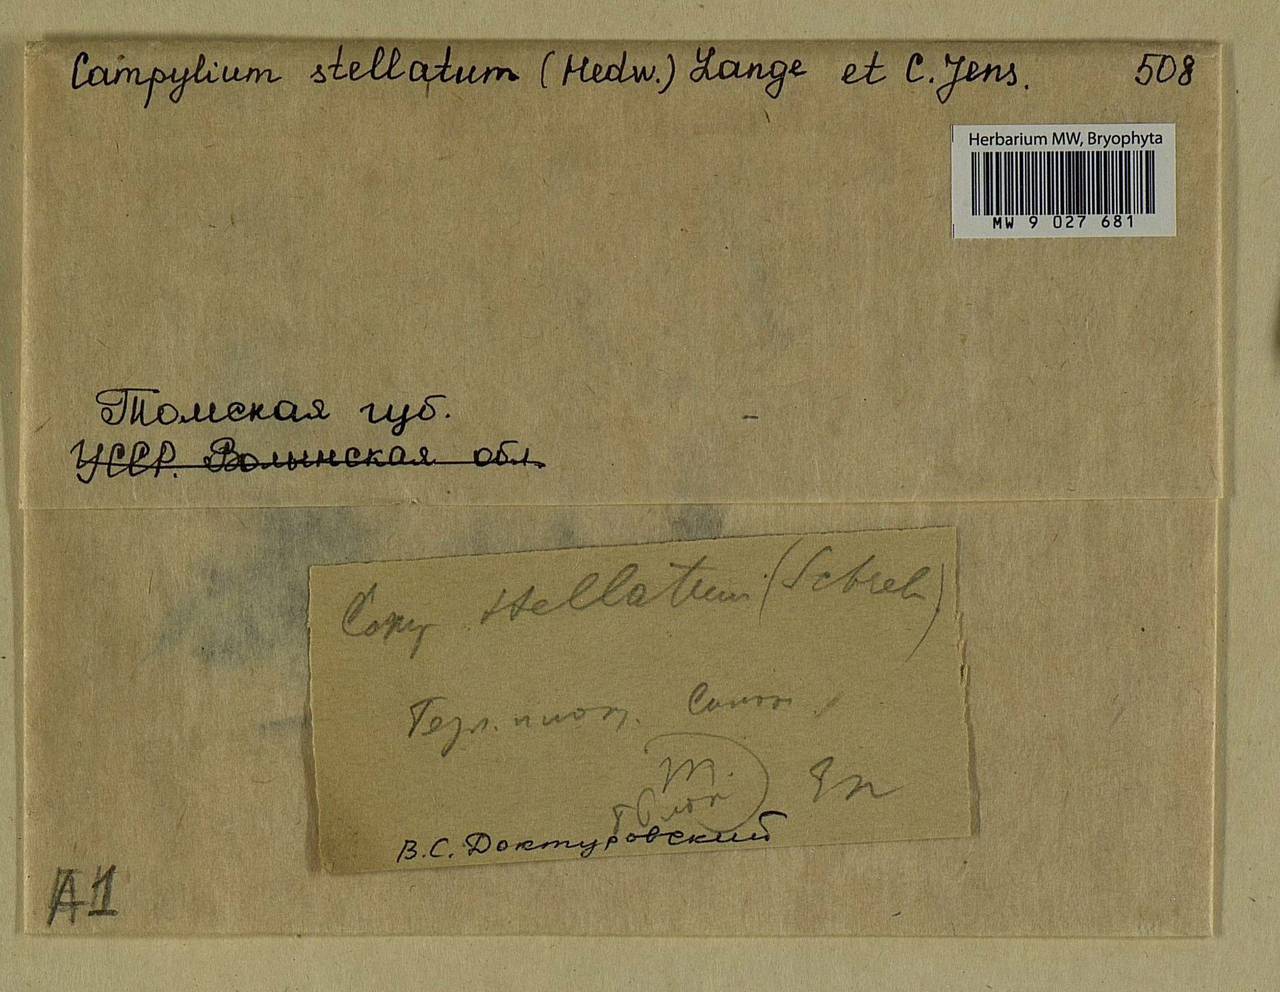 Campylium stellatum (Hedw.) Lange et C. Jens. 508
Herbarium MW, Bryophyta
MW 9 027 681
Томская губ.
УССР. Волынская обл.
stellatum (Schreb)
Т.
В.С. Доктуровский
А1